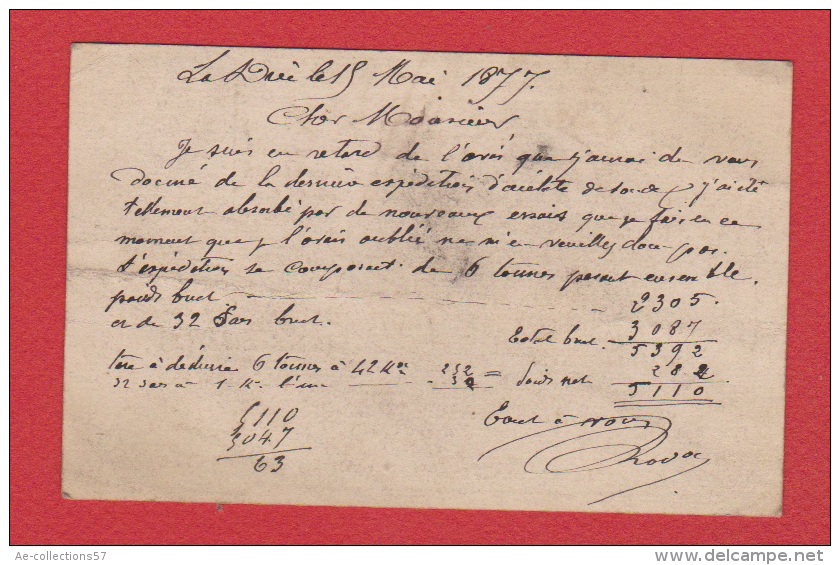 le 15 Mai 1877.
Cher Monsieur
Je suis en retard de l'avis que j'aurai du vous
donné de la dernière expédition d'acétate de soude, j'ai été
tellement absorbé par de nouveaux essais que je fais en ce
moment que je l'avais oublié ne m'en veuillez donc pas.
L'expédition se composait de 6 tonnes pesant ensemble
poids brut 2305.
et de 32 sacs brut. 3087
Total brut. 5392
tare à déduire 6 tonnes à 42 Kos 252 = 282
32 sacs à 1 K. l'un 30 poids net 5110
5110
5047
63
Tout à vous
Ae-collections57
www.delcampe.net